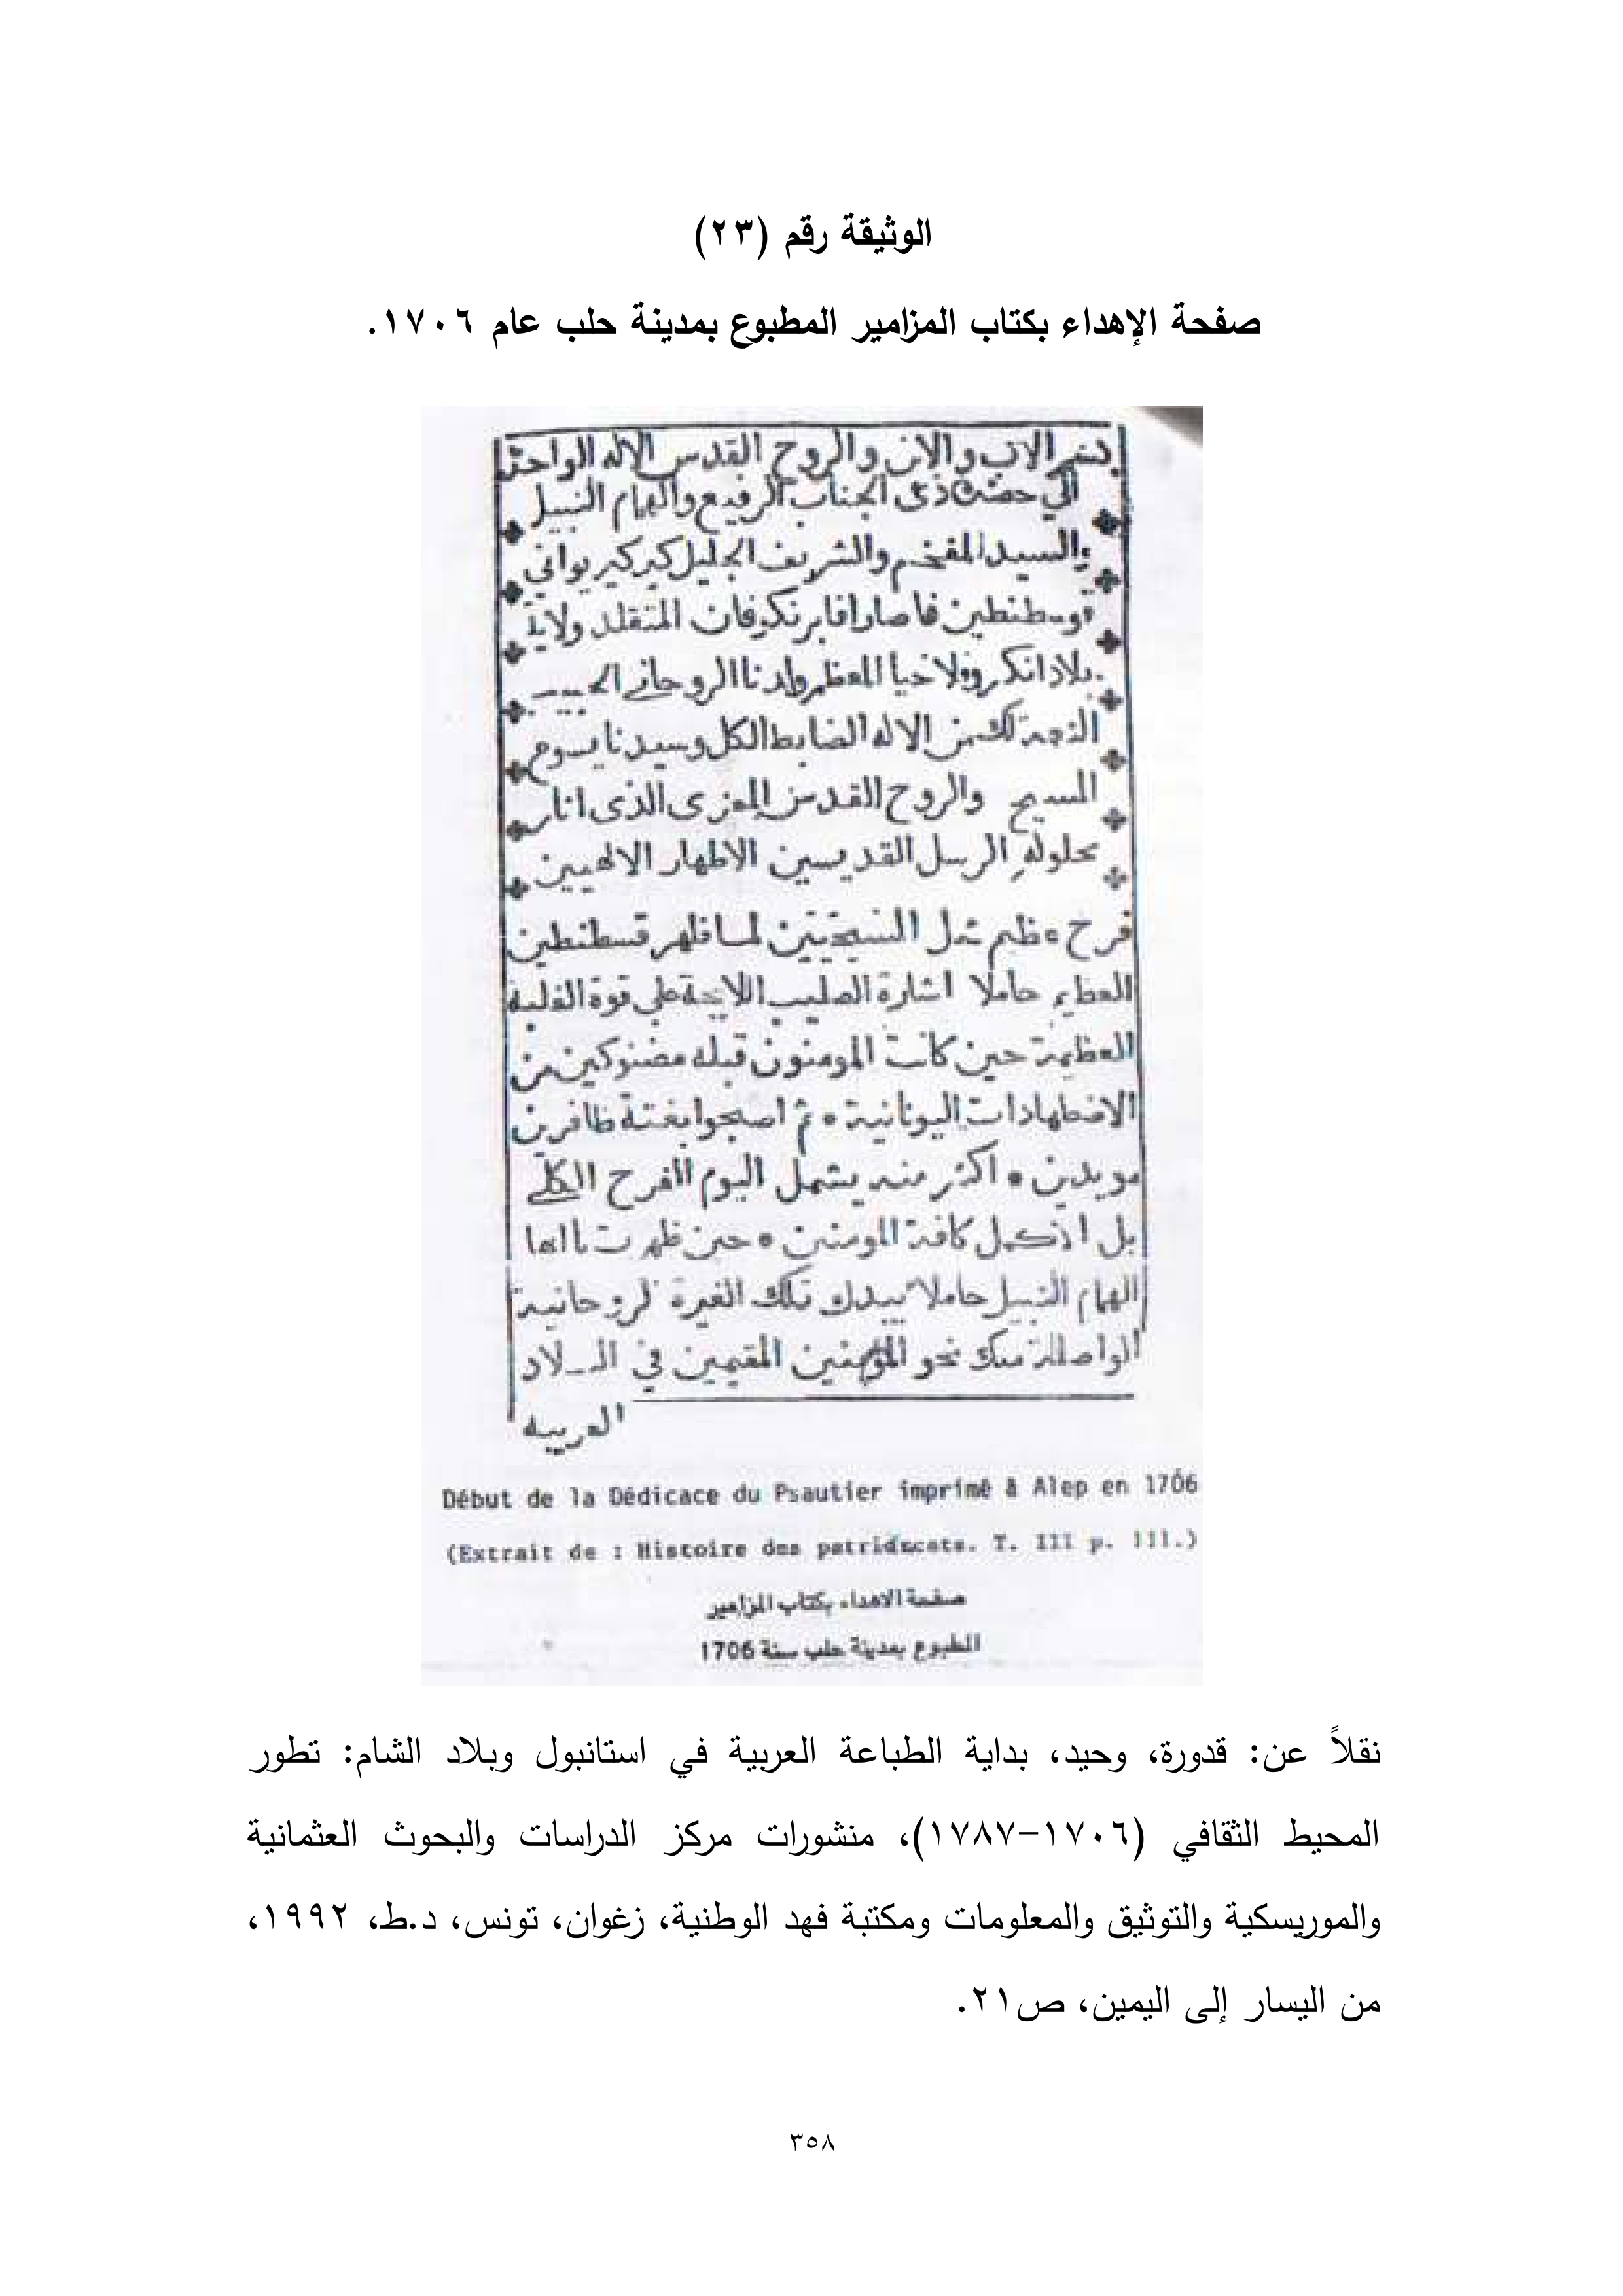 الوثيقة رقم (٢٣)
صفحة الإهداء بكتاب المزامير المطبوع بمدينة حلب عام ١٧٠٦.
بسم الاب والابن والروح القدس الاله الواحد
الي حضرة ذى الجناب الرفيع والهمام النبيل
والسيد المفخم والشريف الجليل كير كير يواني
قوسطنطين فاصارافا برنكوفان المتقلد ولاية
بلاد انكروفلاخيا المعظم ولدنا الروحاني الحبيب
النعمة لك من الاله الضابط الكل وسيدنا يسوع
المسيح والروح القدس المعزى الذى انار
بحلولهِ الرسل القديسين الاطهار الالهيين
فرح عظيم شمل المسيحيين لما ظهر قسطنطين
العظيم حاملا اشارة الصليب اللايحة علي قوة الغلبة
العظيمة حين كانت المومنون قبله مضنوكين من
الاضطهادات اليونانية ٠ ثم اصبحوا بغتة ظافرين
مويدين ٠ اكثر منه يشمل اليوم الفرح الكلي
بل الاكمل كافة المومنين ٠ حين ظهرت ياايها
الهمام النبيل حاملا بيدك تلك الغيرة الروحانية
الواصلة منك نحو المؤمنين المقيمين في البلاد
العربيه
Début de la Dédicace du Psautier imprimé à Alep en 1706
(Extrait de : Histoire des patriarcats. T. III p. 111.)
صفحة الاهداء بكتاب المزامير
المطبوع بمدينة حلب سنة 1706
نقلاً عن: قدورة، وحيد، بداية الطباعة العربية في استانبول وبلاد الشام: تطور
المحيط الثقافي (١٧٠٦-١٧٨٧)، منشورات مركز الدراسات والبحوث العثمانية
والموريسكية والتوثيق والمعلومات ومكتبة فهد الوطنية، زغوان، تونس، د.ط، ١٩٩٢،
من اليسار إلى اليمين، ص٢١.
٣٥٨